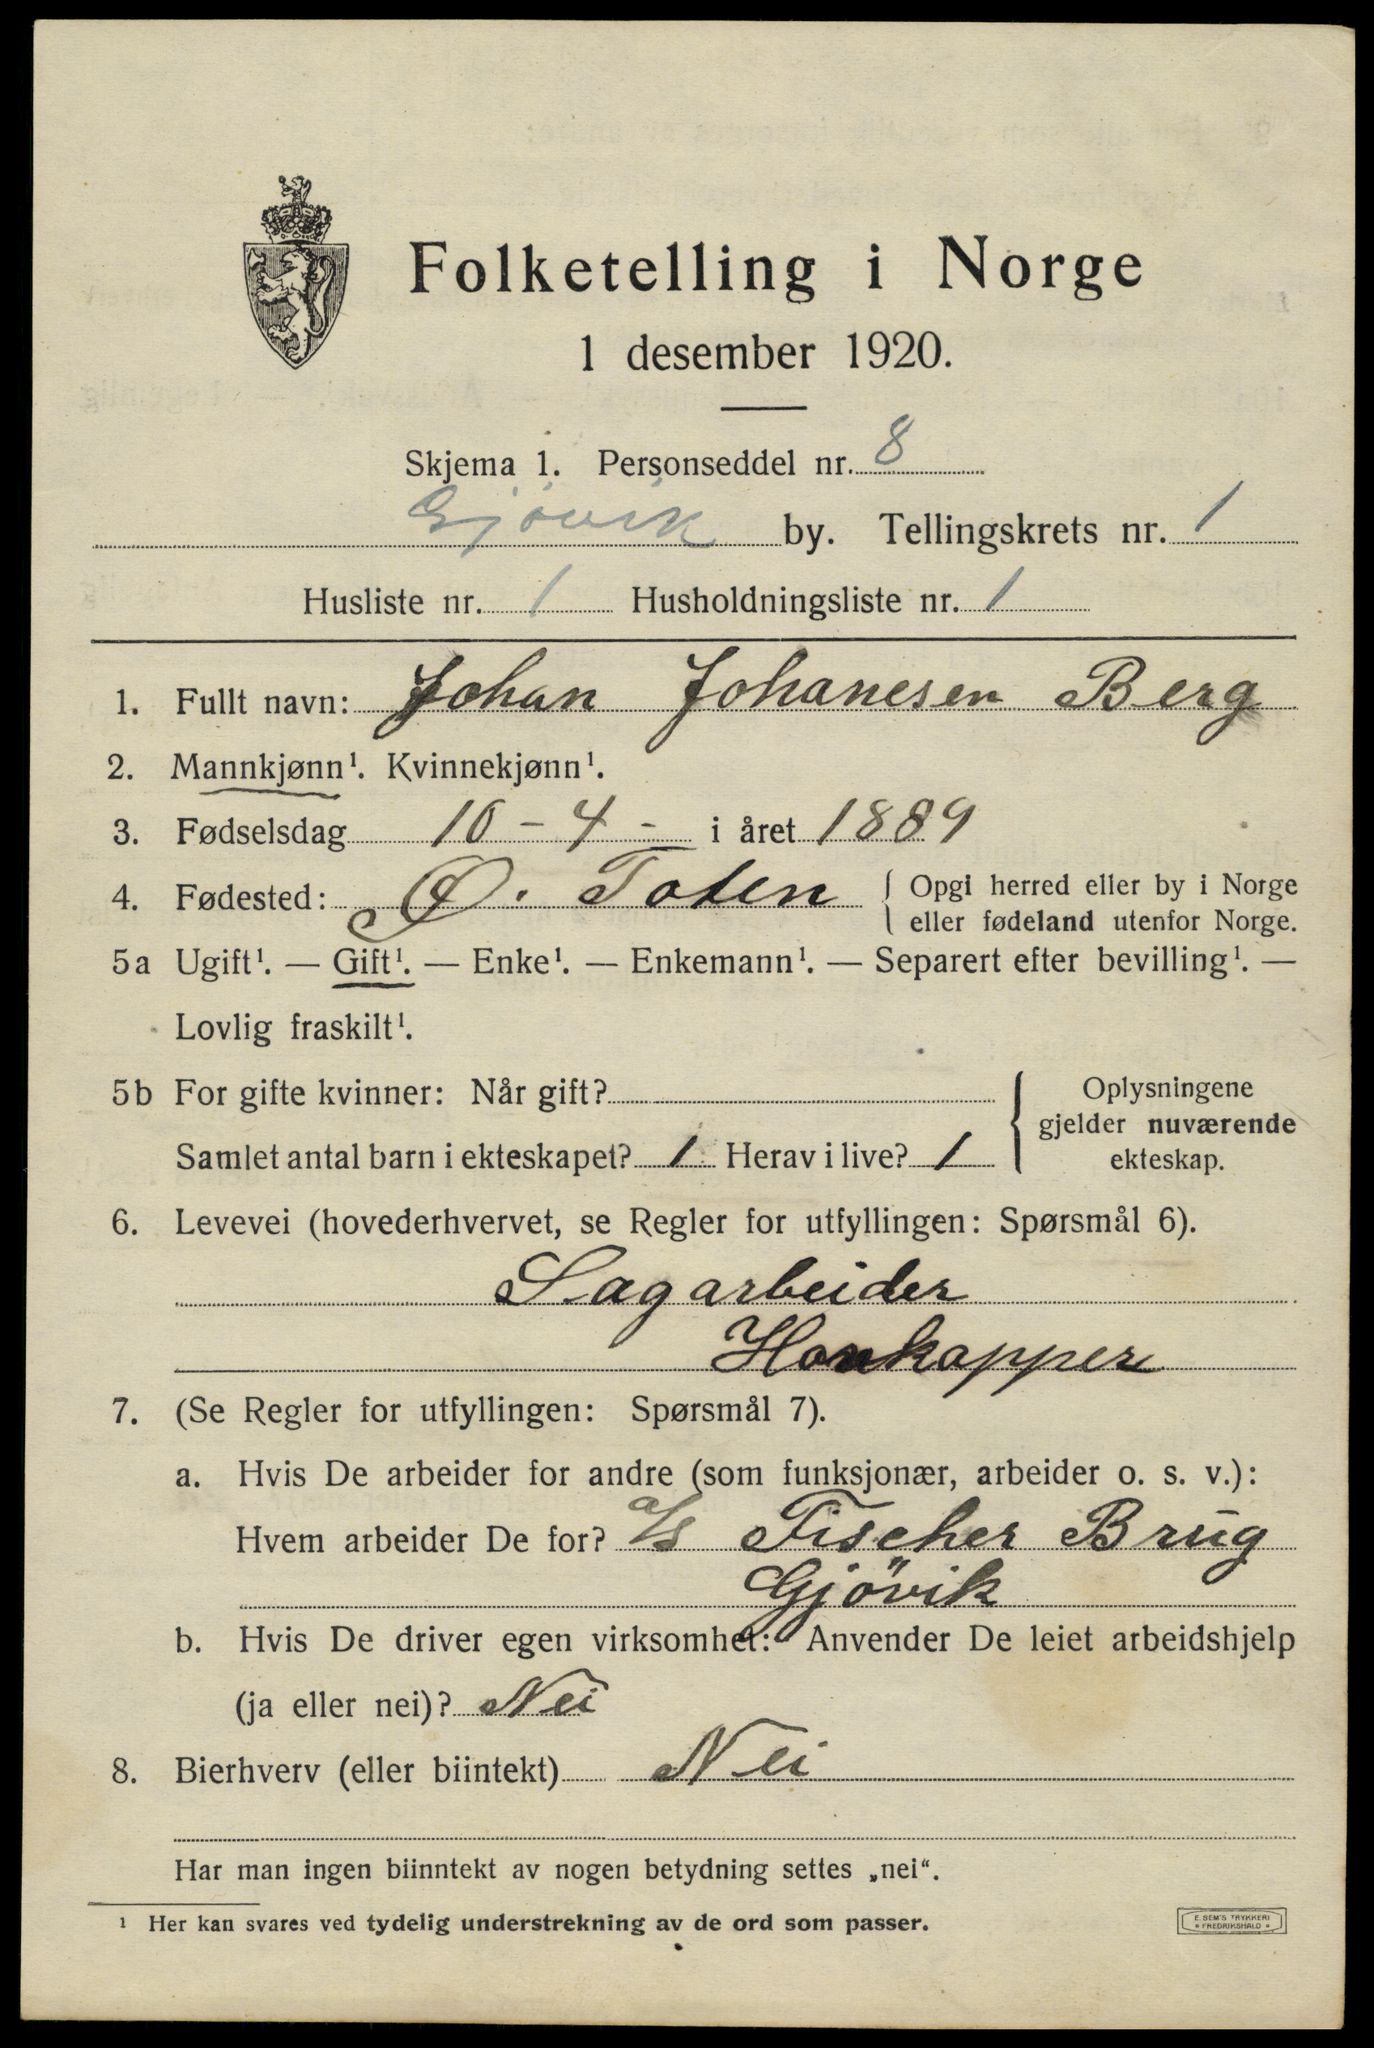 Folketelling i Norge
1 desember 1920.
Skjema 1. Personseddel nr. 8
Gjövik by. Tellingskrets nr. 1
Husliste nr. 1 Husholdningsliste nr. 1
1. Fullt navn: Johan Johanesen Berg
2. Mannkjønn¹. Kvinnekjønn¹.
3. Fødselsdag 10 - 4 - i året 1889
4. Fødested: Ø. Toten { Opgi herred eller by i Norge
eller fødeland utenfor Norge.
5a Ugift¹. — Gift¹. — Enke¹. — Enkemann¹. — Separert efter bevilling¹. —
Lovlig fraskilt¹.
5b For gifte kvinner: Når gift? { Oplysningene
gjelder nuværende
Samlet antal barn i ekteskapet? 1 Herav i live? 1 ekteskap.
6. Levevei (hovederhvervet, se Regler for utfyllingen: Spørsmål 6).
Sagarbeider
7. (Se Regler for utfyllingen: Spørsmål 7).
a. Hvis De arbeider for andre (som funksjonær, arbeider o. s. v.):
Hvem arbeider De for? a/s Fischer Brug
Gjövik
b. Hvis De driver egen virksomhet: Anvender De leiet arbeidshjelp
(ja eller nei)? Nei
8. Bierhverv (eller biintekt) Nei
Har man ingen biinntekt av nogen betydning settes „nei“.
¹ Her kan svares ved tydelig understrekning av de ord som passer.
E. SEM'S TRYKKERI
FREDRIKSHALD